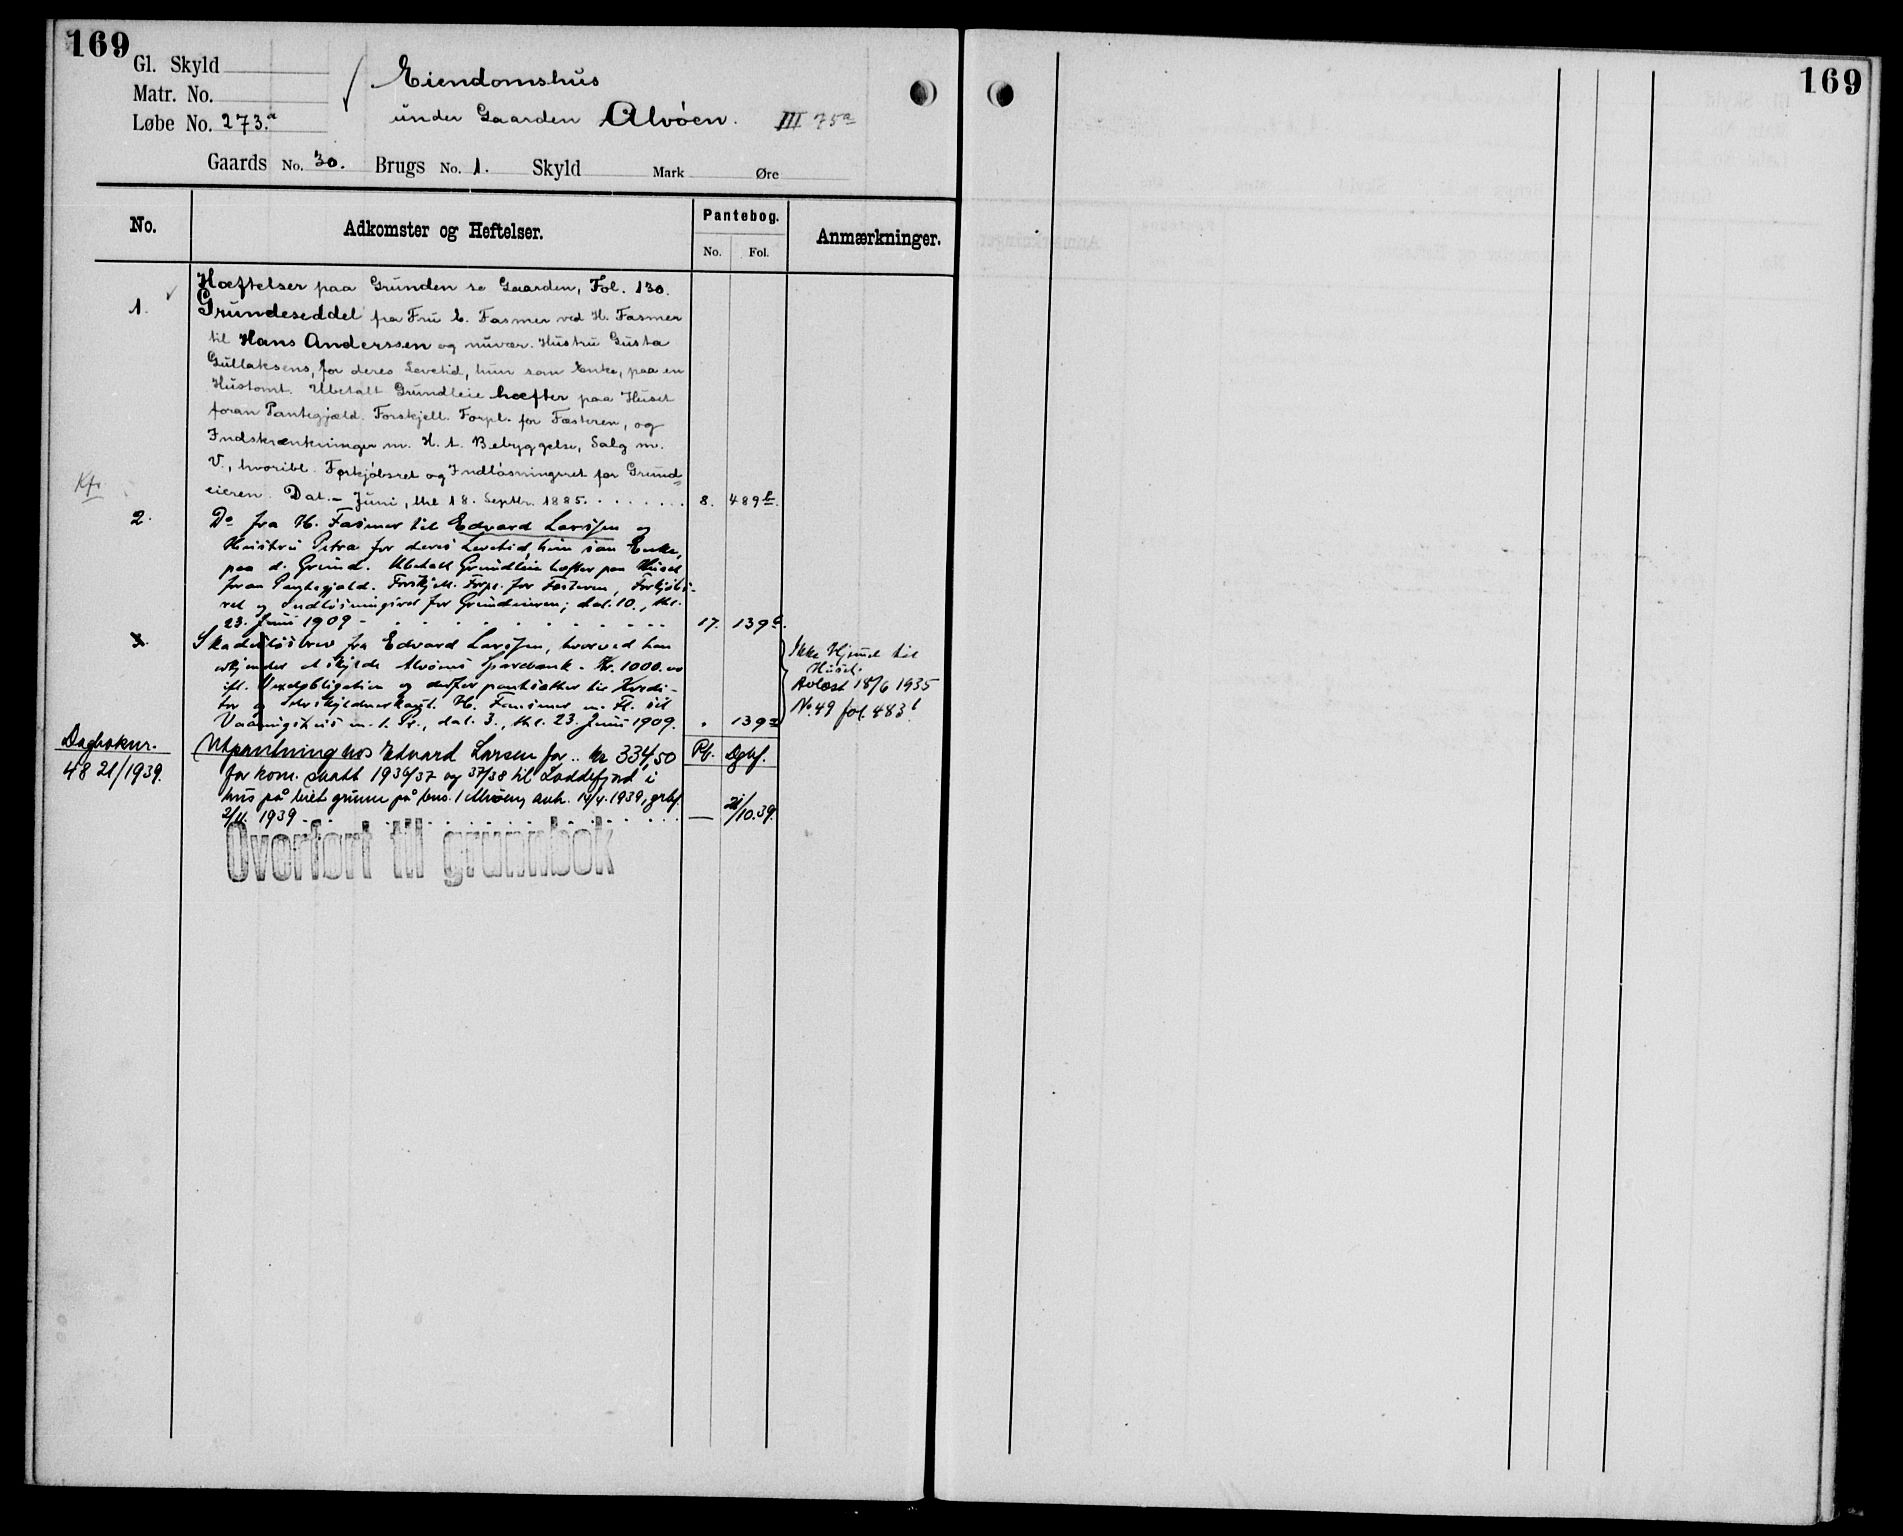 169
169
Gl. Skyld
Matr. No.
Løbe No. 273.a
Eiendomshus
under Gaarden Alvöen. III 75a
Gaards No. 30. Brugs No. 1. Skyld Mark Øre
No. Adkomster og Heftelser. Pantebog. Anmærkninger.
No. Fol.
Hæftelser paa Grunden se Gaarden, Fol. 130.
1. Grundeseddel fra Fru E. Fasmer ved H. Fasmer
til Hans Anderssen og nuvær. Hustru Gusta
Gullaksens, for deres Levetid, hun som Enke, paa en
Hustomt. Ubetalt Grundleie hæfter paa Huset
foran Pantegjæld. Forskjell. Forpl. for Fæsteren, og
Indskrænkninger m. H. t. Bebyggelse, Salg m.
V., hvoribl. Forkjöbsret og Indlösningsret for Grund=
eieren. Dat. – Juni, thl 18. Septbr. 1885. 8. 489b.
Kfr.
2. Do fra H. Fasmer til Edvard Larssen og
Hustru Petra for deres Levetid, hun som Enke,
paa d. Grund. Ubetalt Grundleie hefter paa Huset
foran Pantegjæld. Forskjell. Forpl. for Fæsteren, Forkjöbs-
ret og Indlösningsret for Grundeieren; dat. 10., thl.
23. Juni 1909 17. 139
3. Skadeslösbrev fra Edvard Larssen, hvorved han
erkjender at skylde Alvöens Sparebank - Kr. 1000.00
ifl. Vexelobligation og derfor pantsætter til Kredi-
tor og Selvskyldnerkaut. H. Fasmer m. Fl. sit
Vaaningshus m. 1. Pr., dat. 3., thl. 23. Juni 1909. " 139
Ikke Hjemmel til
Huset.
Avlæst 18/6 1935
No. 49 fol. 483b
Dagboknr. Utpantning hos Edvard Larsen for .. kr 334,50 Pb. Dgbf.
4821/1939. for kom. skatt 1936/37 og 37/38 til Laddefjord i
hus på leiet grunn på bnr. 1 Alvöen, avh. 14/4. 1939,
1939 — 21/10.39.
Overført til grunnbok